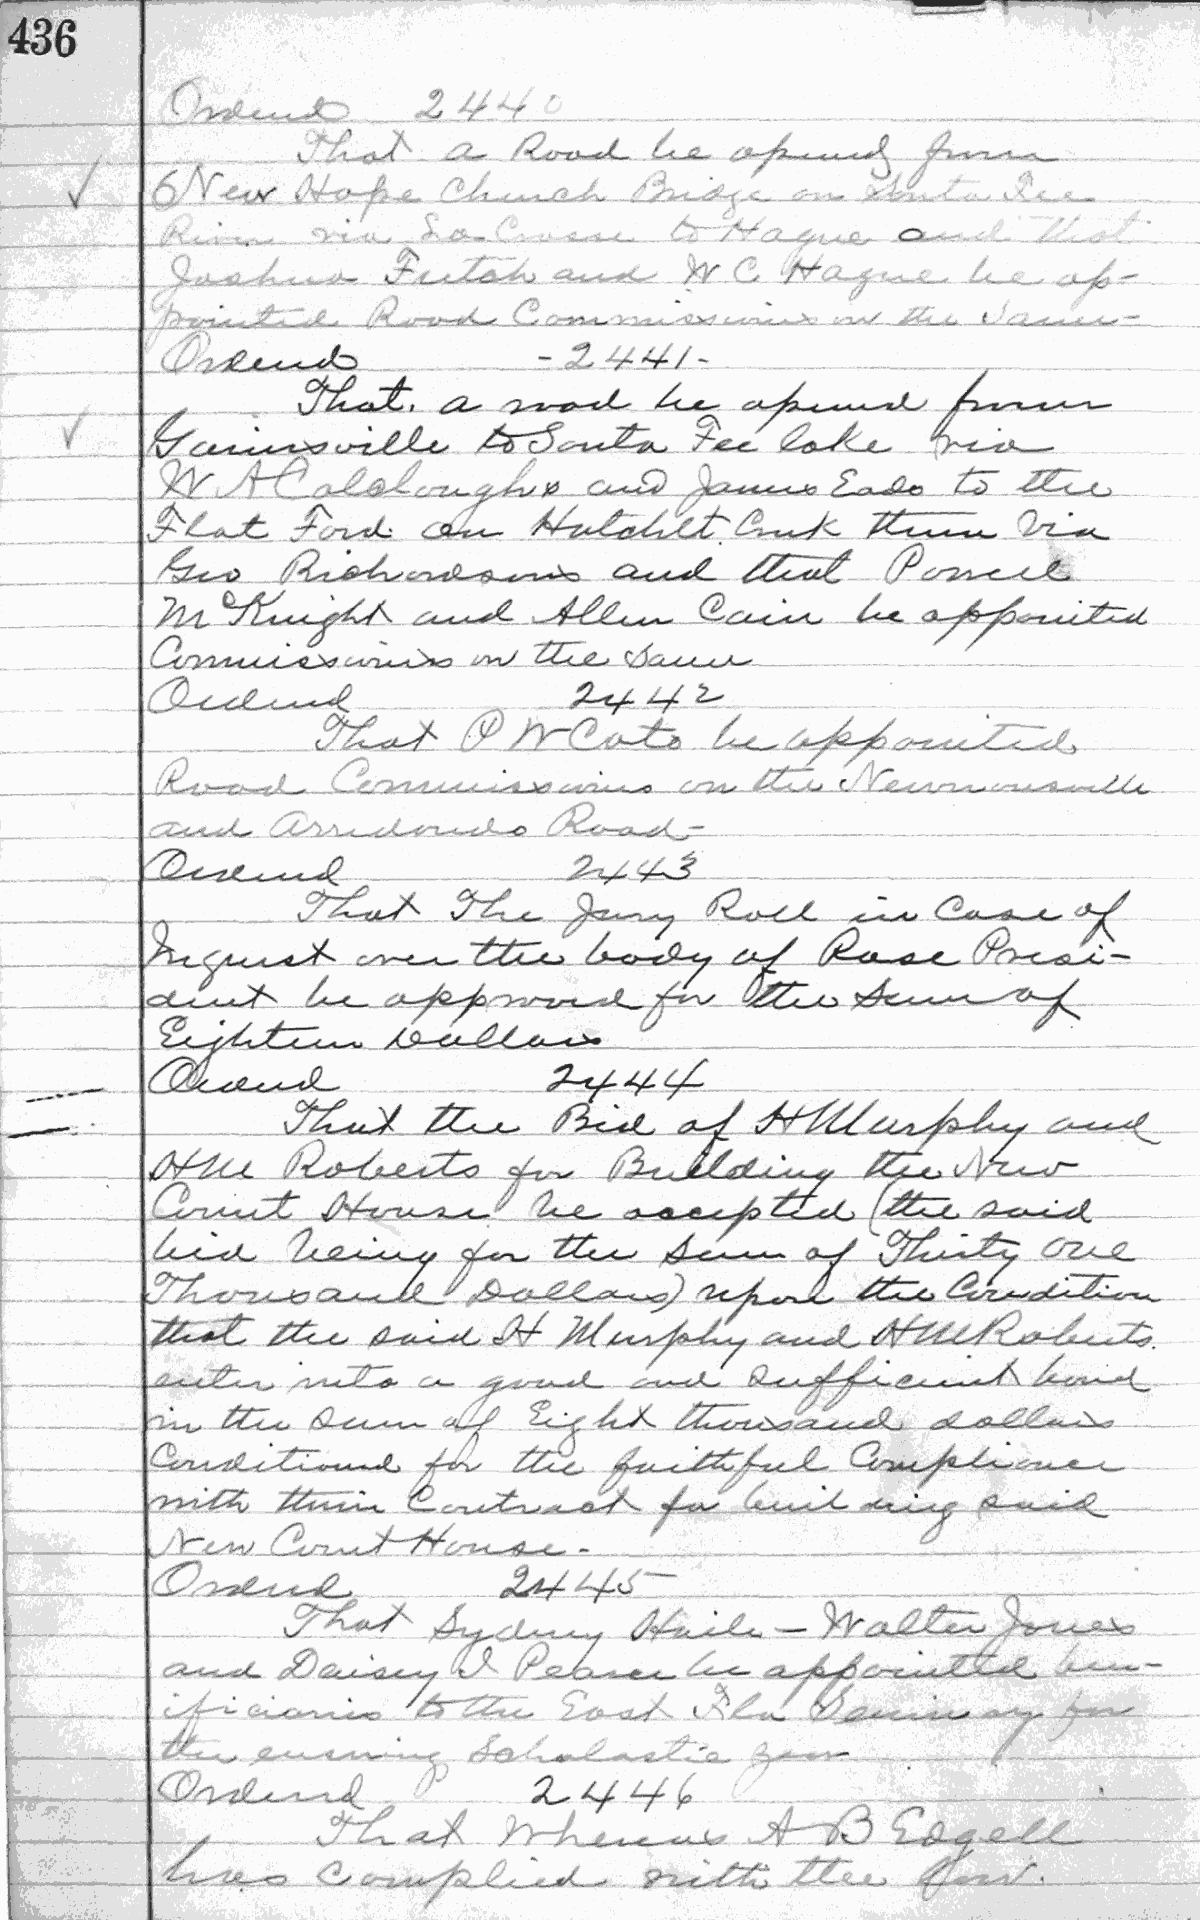 436
Ordered 2440
That a Road be opened from
New Hope Church Bridge on Santa Fee
River via La Crosse to Hague and that
Joshua Futch and W C Hague be ap-
pointed Road Commissioners on the Same-
Ordered -2441-
That. a road be opened from
Gainesville to Santa Fee lake via
W A Colcloughs and James Eads to the
Flat Ford on Hatchet Creek then Via
Geo Richardsons and that Powell
McKnight and Allen Cain be appointed
Commissioners on the Same
Ordered 2442
That P W Cato be appointed
Road Commissioner on the Newnansville
and Arredondo Road-
Ordered 2443
That The Jury Roll in Case of
Inquest over the body of Rose Presi-
dent be approved for the Sum of
Eighteen Dollars
Ordered 2444
That the Bid of H Murphy and
H M Roberts for Building the New
Court House be accepted (the said
bid being for the Sum of Thirty One
Thousand Dollars) upon the Condition
that the said H Murphy and H M Roberts
enter into a good and sufficient bond
in the sum of Eight thousand dollars
Conditioned for the faithful Compliance
with their Contract for building said
New Court House-
Ordered 2445
That Sydney Haile - Walter Jones
and Daisey I Pearce be appointed ben-
ificiaries to the East Fla Seminary for
the ensuing Scholastic year
Ordered 2446
That Whereas A B Edgell
has Complied with the law.